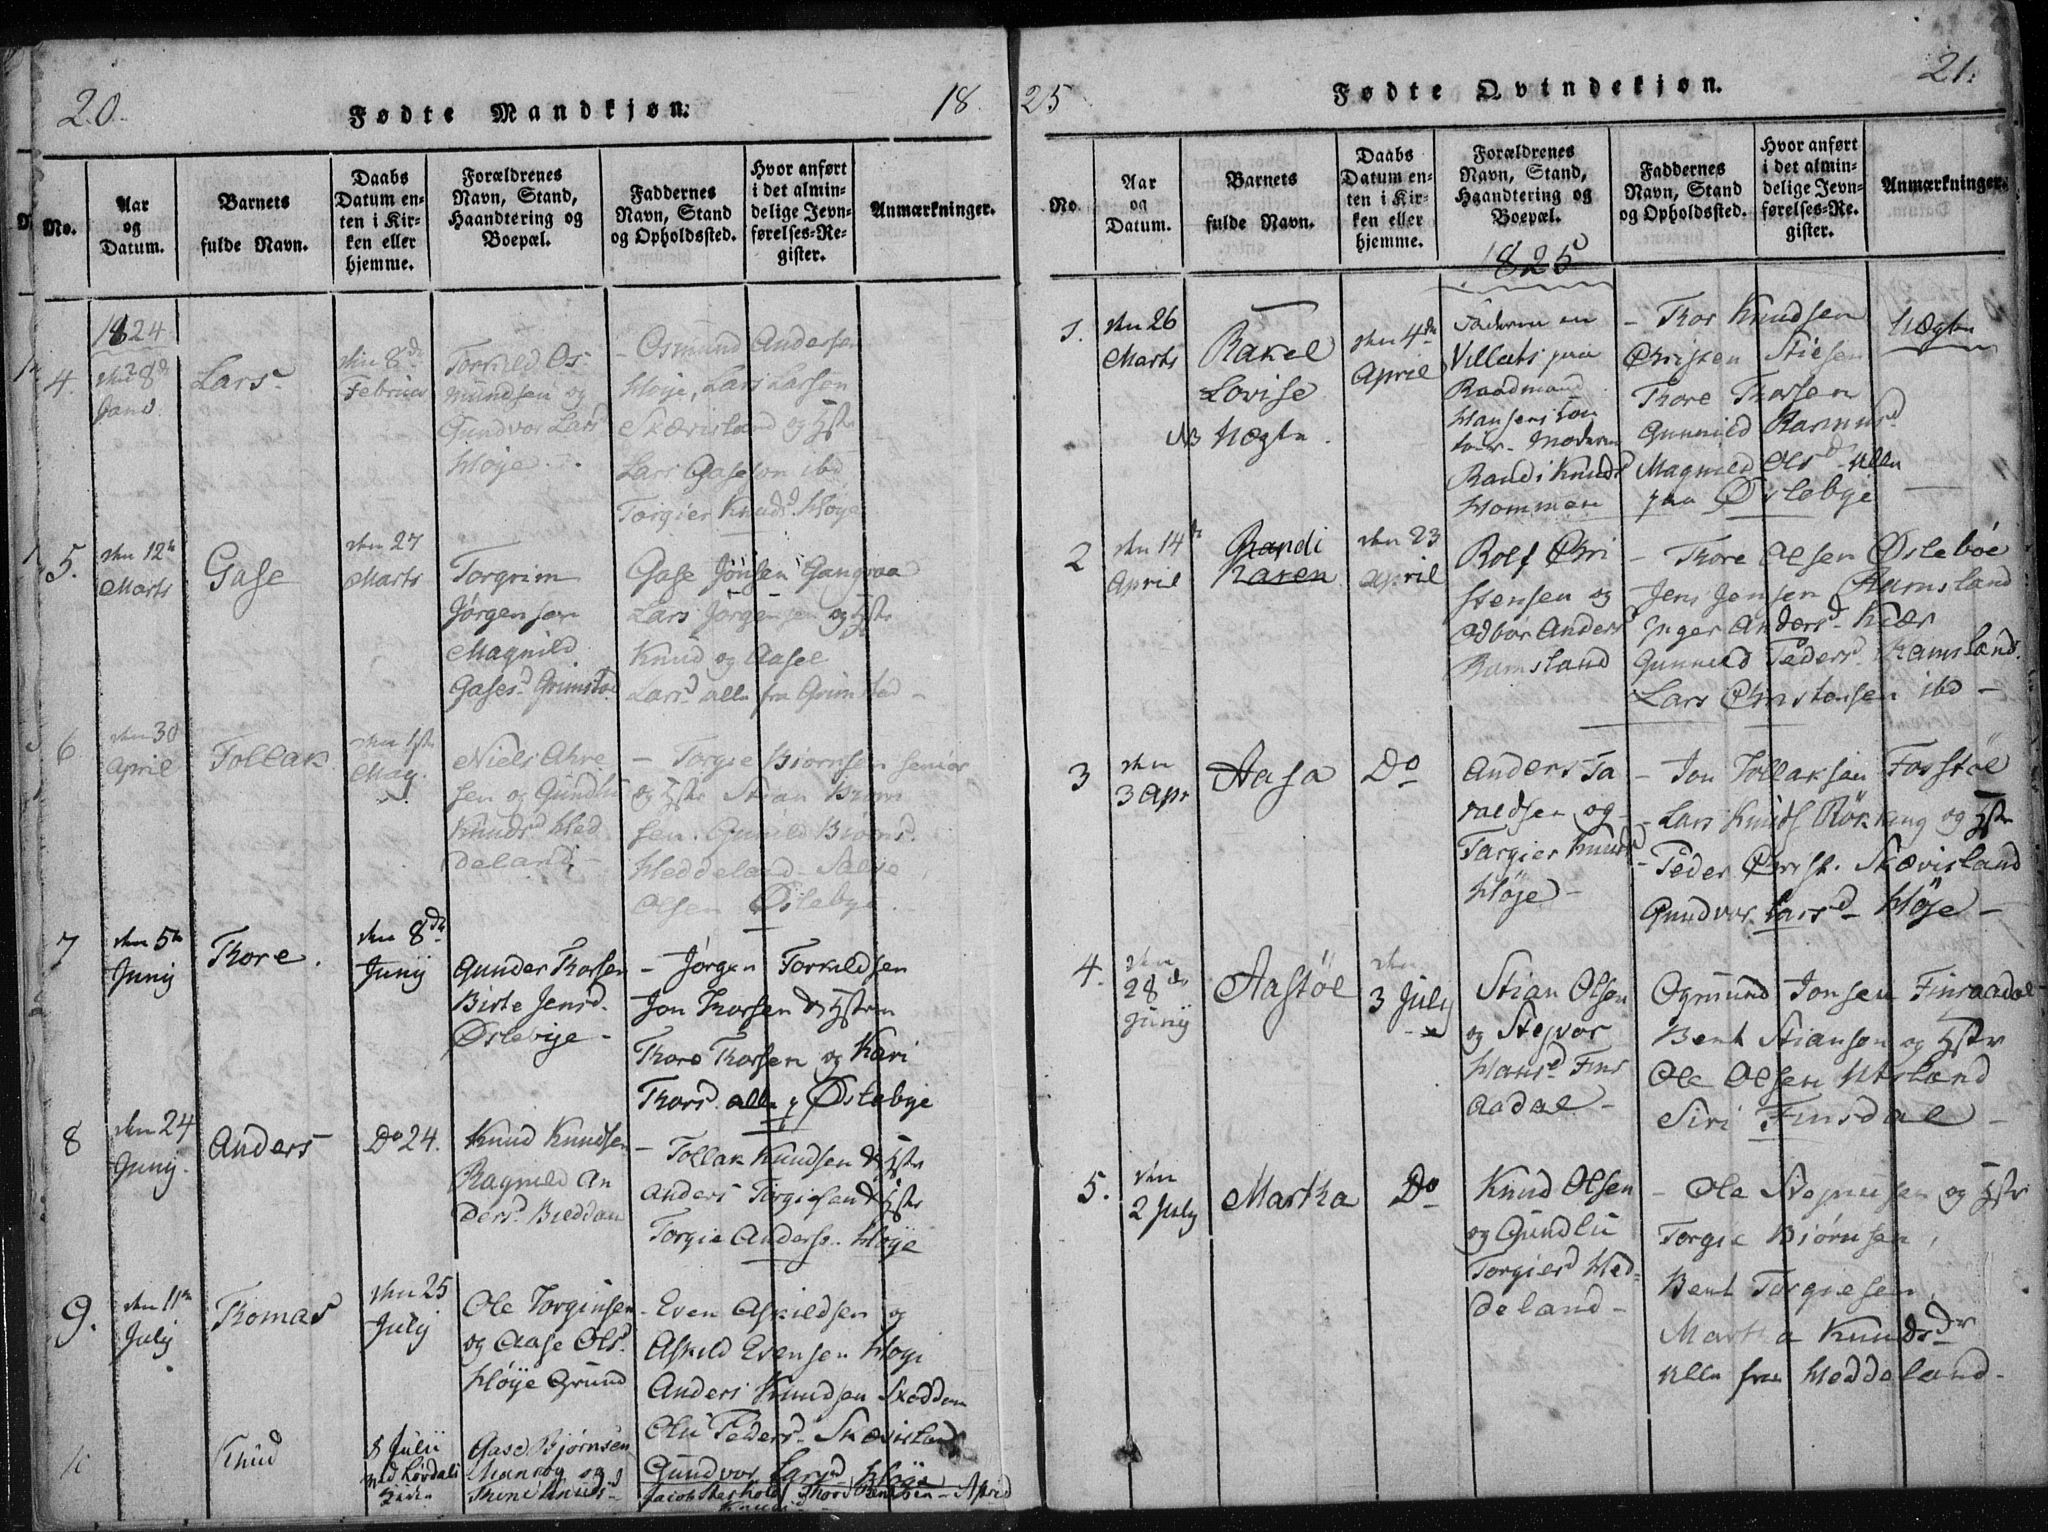 20.
Fødte Mandkjøn.
18
No.
Aar
og
Datum.
Barnets
fulde Navn.
Daabs
Datum en-
ten i Kir-
ken eller
hjemme.
Forældrenes
Navn, Stand,
Haandtering og
Boepæl.
Faddernes
Navn, Stand
og Opholdssted.
Hvor anført
i det almin-
delige Jevn-
førelses-Re-
gister.
Anmærkninger.
1824
4.
den 8de
Janv.
Lars
den 8de
Februar
Torkild Os-
mundsen og
Gundvor Larsd
Høje
Osmund Andersen
Høje, Lars Larsen
Skævisland og Hstr
Lars Gaseson ibd
Torgier Knudsd. Høye
5.
den 12te
Marts
Gase
den 27
Marts
Torgrim
Jørgensen
Magnild
Gasesd Grimstøe
Gase Jönsen Gangvaa
Lars Jørgensen og Hstr
Knud og Aasel
Larsd alle fra Grimstød
6
den 30
April
Tollak
den 1ste
May.
Niels Ahre
sen og Gundlu
Knudsd Hed
deland
Torgie Biørnsen senior
og Hstr Stian Biørn
sen. Gunild Biørnsd.
Heddeland
Olsen Øslebye.
7
den 5te
Junij
Thore.
den 8de
Junij
Gunder Thorsen
Birte Jensd.
Øslebye
Jørgen Torkildsen
Jon Thorsen & Hstruen
Thore Thorsen og Kari
Thorsd. alle p Øslebye
8
den 24
Junij.
Anders
Do 24.
Knud Knudsen
Ragnild An
dersd. Bieddan
Tollak Knudsen & Hstr
Anders Torgiesen & Hstr
Torgie Anderss. Høye
9.
den 11te
Julij
Thomas
den 25
Julij
Ole Torginsen
og Aase Olsd.
Høije Grund
Even Askildsen og
Askild Evensen Høye
Anders Knudsen Skoddem
Olu Pedersd. Skævisland
Gundvor Larsd Høye
10
Knud
8 Julii
Gase Bjørnsen
og
Thore Knudsen
25
Fødte Qvindekjøn.
21.
No.
Aar
og
Datum.
Barnets
fulde Navn.
Daabs
Datum en-
ten i Kir-
ken eller
hjemme.
Forældrenes
Navn, Stand,
Haandtering og
Boepæl.
Faddernes
Navn, Stand
og Opholdssted.
Hvor anført
i det almin-
delige Jevn-
førelses-Re-
gister.
Anmærkninger.
1825
1.
den 26
Marts
Rakel
Lovise
NB Uægte.
den 4de
April
Faderen en
paa
Raadmand
Hansens Con
toir. Moderen
Randi Knudsd
Hommen
Thor Knudsen
Christen Stiesen
Thore Thorsen
Gunnild Rasmusd
Magnild Olsd. alle
paa Øslebye
Uægte
2
den 14de
April
Randi
Karen
den 23
April
Rolf Chri
stensen og
Adbor Andersd
Ramsland
Thore Olsen Øslebøe
Jens Jensen Ramsland
Inger Andersd. Kiær
Gunnild Pedersd. Ramsland.
Lars Christensen ibd
3
den
3 Apr
Aasa
Do
Anders Ta
raldsen og
Targier Knudsd
Höje
Jon Tollaksen Fosstöl
Lars Knuds Røkkeng og Hstr
Peder Christ. Skævisland
Gundvor Larsd. Höje
4.
den
28de
Junij
Aastöl
den
3 July
Stian Olson
og Stejvor
Hansd Fins
aadal
Ogmund Jonsen Finsaadal
Bent Stianson og Hstr
Ole Olsen Utsland
Siri Finsdal
5.
den
2 July
Martha
Do
Knud Olsen
og Gundlu
Torgiersd Hed
deland
Ole Stejnersen og Hstr
Torgie Biörnsen,
Bent Torgiesen
Martha Knudsdr
alle fra Heddeland